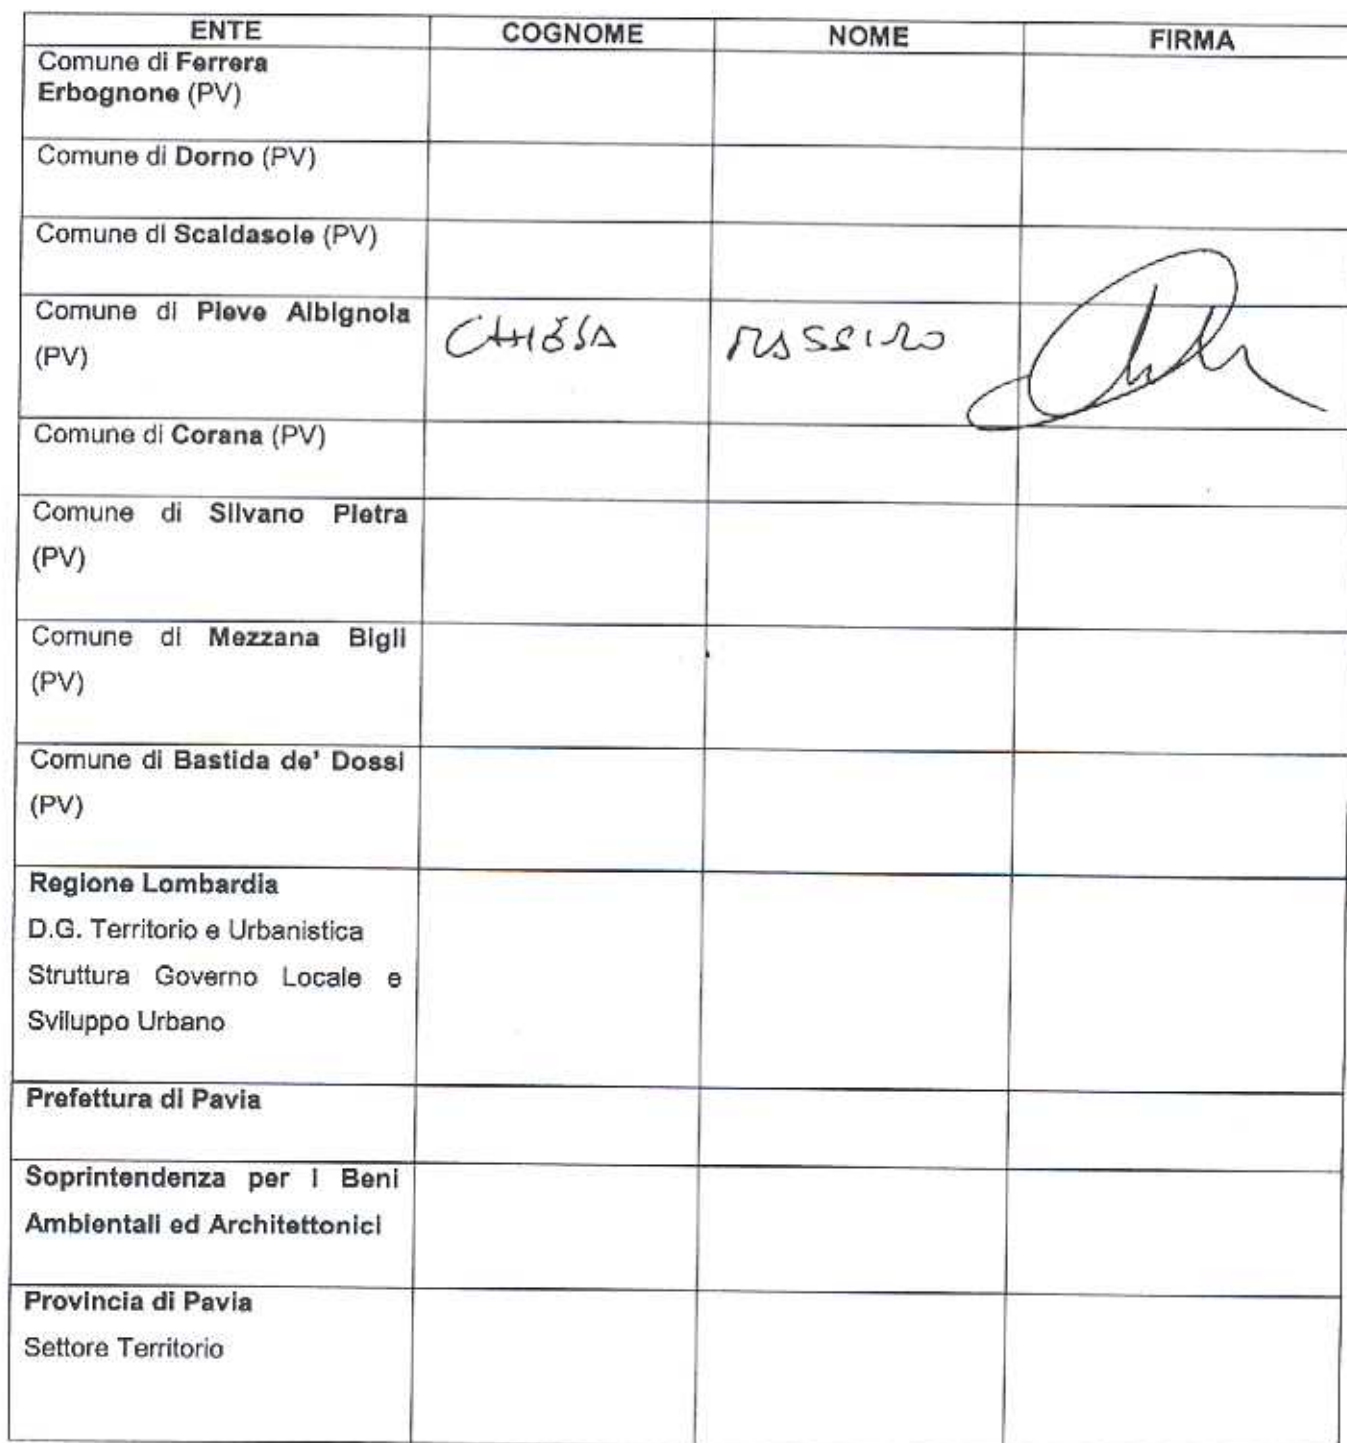 ENTE COGNOME NOME FIRMA
Comune di Ferrera
Erbognone (PV)
Comune di Dorno (PV)
Comune di Scaldasole (PV)
Comune di Pieve Albignola
(PV)
CHIESA MASSIMO
Comune di Corana (PV)
Comune di Silvano Pietra
(PV)
Comune di Mezzana Bigli
(PV)
Comune di Bastida de' Dossi
(PV)
Regione Lombardia
D.G. Territorio e Urbanistica
Struttura Governo Locale e
Sviluppo Urbano
Prefettura di Pavia
Soprintendenza per i Beni
Ambientali ed Architettonici
Provincia di Pavia
Settore Territorio